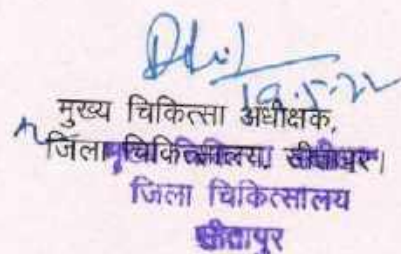 19.5.22
मुख्य चिकित्सा अधीक्षक,
जिला चिकित्सालय, सीतापुर।
जिला चिकित्सालय
सीतापुर